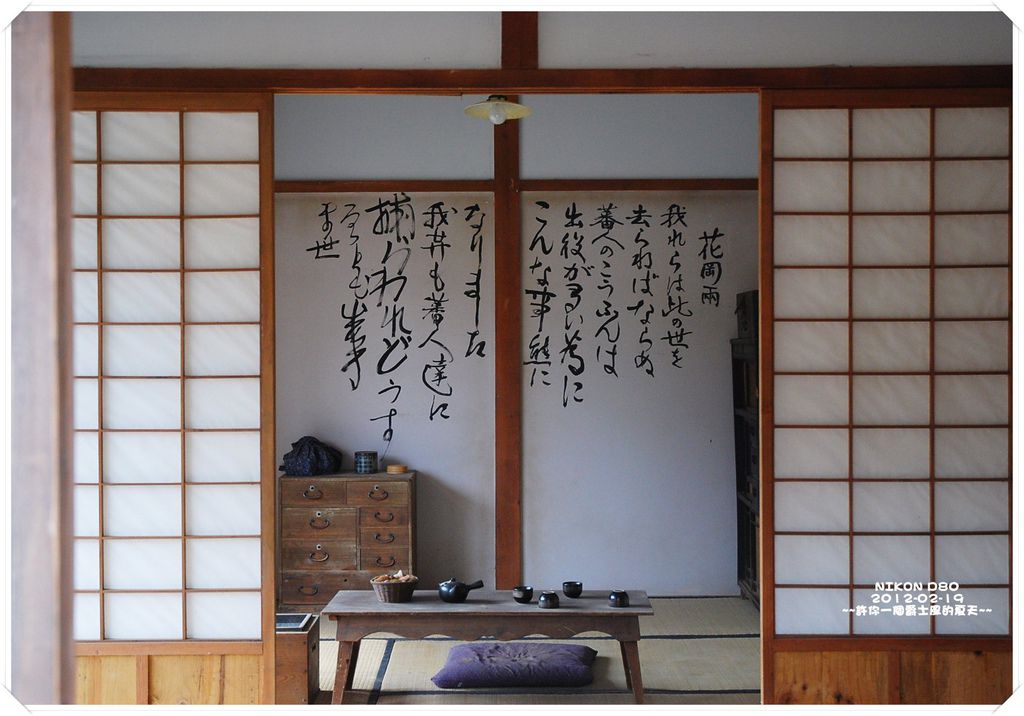 花岡両
我れらは此の世を
去らねばならぬ
蕃人のこうふんは
出役が多い為に
こんな事態に
なりました
我井も蕃人達に
捕らわれどうす
NIKON D80
2012-02-19
~~許你一個爵士風的夏天~~